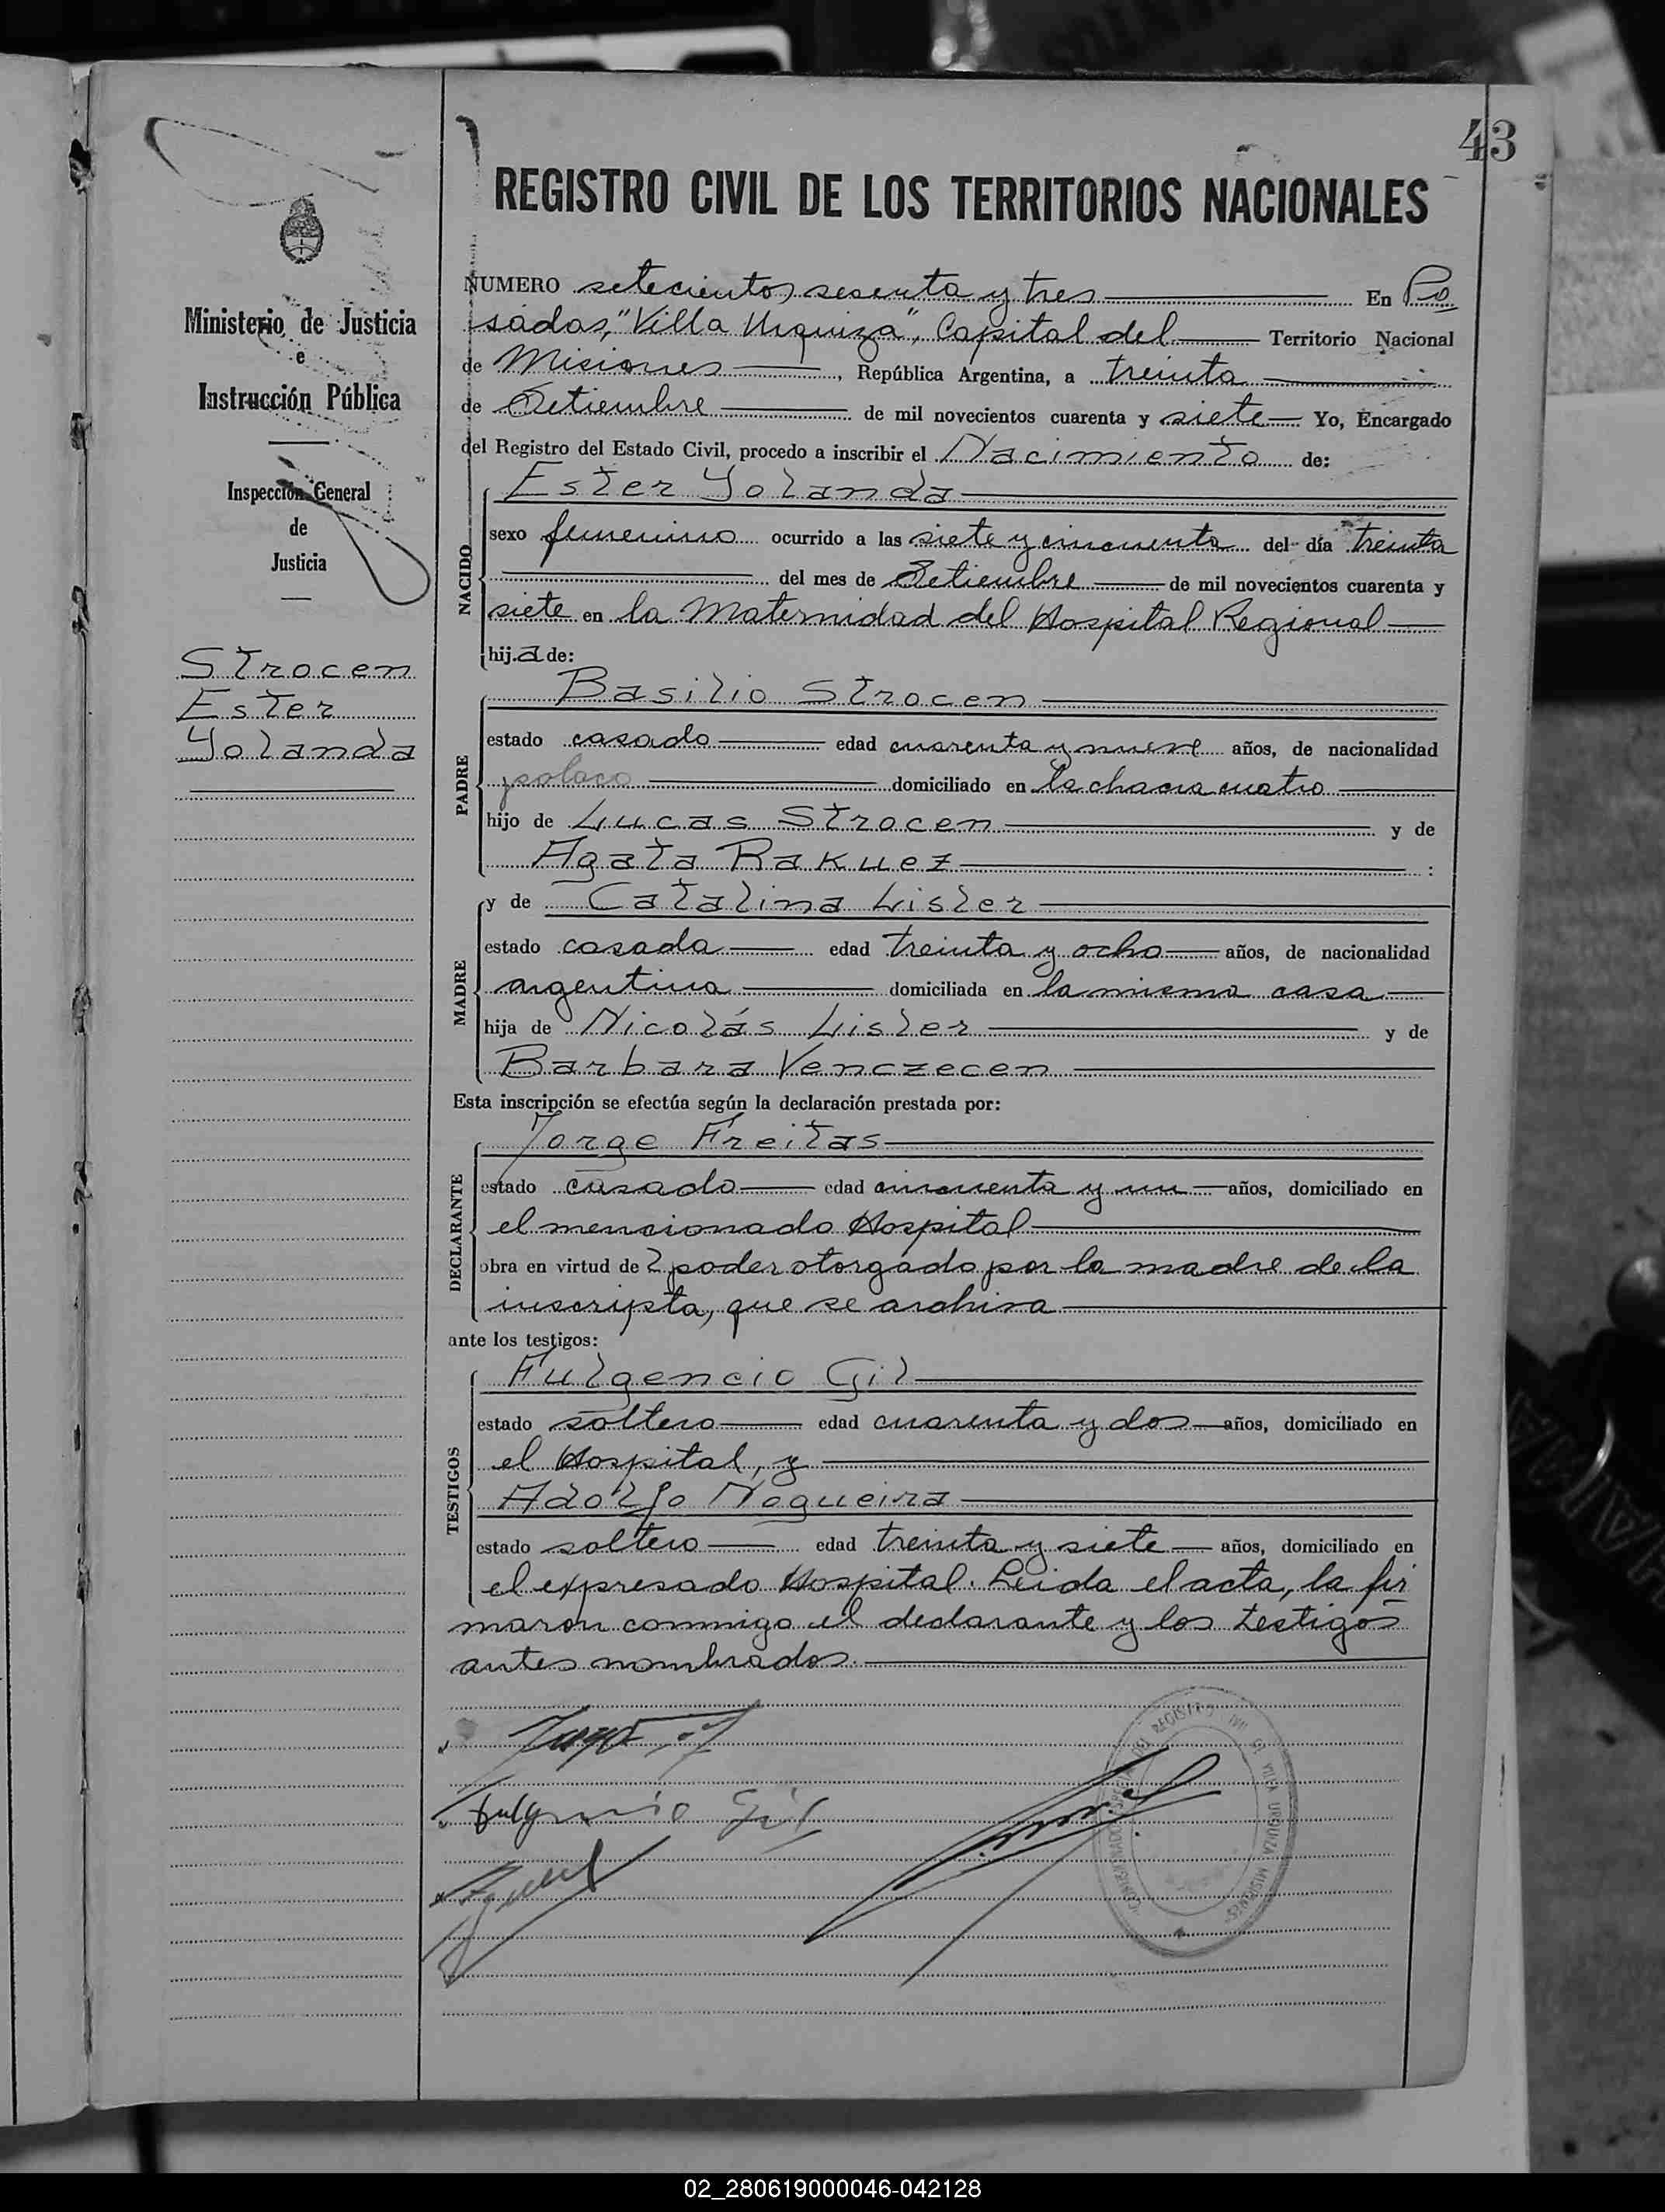 43
REGISTRO CIVIL DE LOS TERRITORIOS NACIONALES
Ministerio de Justicia
e
Instrucción Pública
Inspección General
de
Justicia
Strocen
Ester
Yolanda
NUMERO setecientos sesenta y tres En Po
sadas, "Villa Urquiza", Capital del Territorio Nacional
de Misiones, República Argentina, a treinta
de Setiembre de mil novecientos cuarenta y siete Yo, Encargado
del Registro del Estado Civil, procedo a inscribir el Nacimiento de:
Ester Yolanda
NACIDO
sexo femenino ocurrido a las siete y cincuenta del día treinta
del mes de Setiembre de mil novecientos cuarenta y
siete en la Maternidad del Hospital Regional
hija de:
Basilio Strocen
PADRE
estado casado edad cuarenta y nueve años, de nacionalidad
polaco domiciliado en la chacra cuatro
hijo de Lucas Strocen y de
Agata Rakuez :
y de Catalina Lisler
MADRE
estado casada edad treinta y ocho años, de nacionalidad
argentina domiciliada en la misma casa
hija de Nicolás Lisler y de
Barbara Venczecen
Esta inscripción se efectúa según la declaración prestada por:
Jorge Freitas
DECLARANTE
estado casado edad cincuenta y un años, domiciliado en
el mencionado Hospital
obra en virtud de poder otorgado por la madre de la
inscripta, que se archiva
ante los testigos:
Fulgencio Gil
TESTIGOS
estado soltero edad cuarenta y dos años, domiciliado en
el Hospital, y
Adolfo Nogueira
estado soltero edad treinta y siete años, domiciliado en
el expresado Hospital. Leida el acta, la fir
maron conmigo el declarante y los testigos
antes nombrados.
Fulgencio Gil
REGISTRO CIVIL VILLA URQUIZA MISIONES
02_280619000046-042128